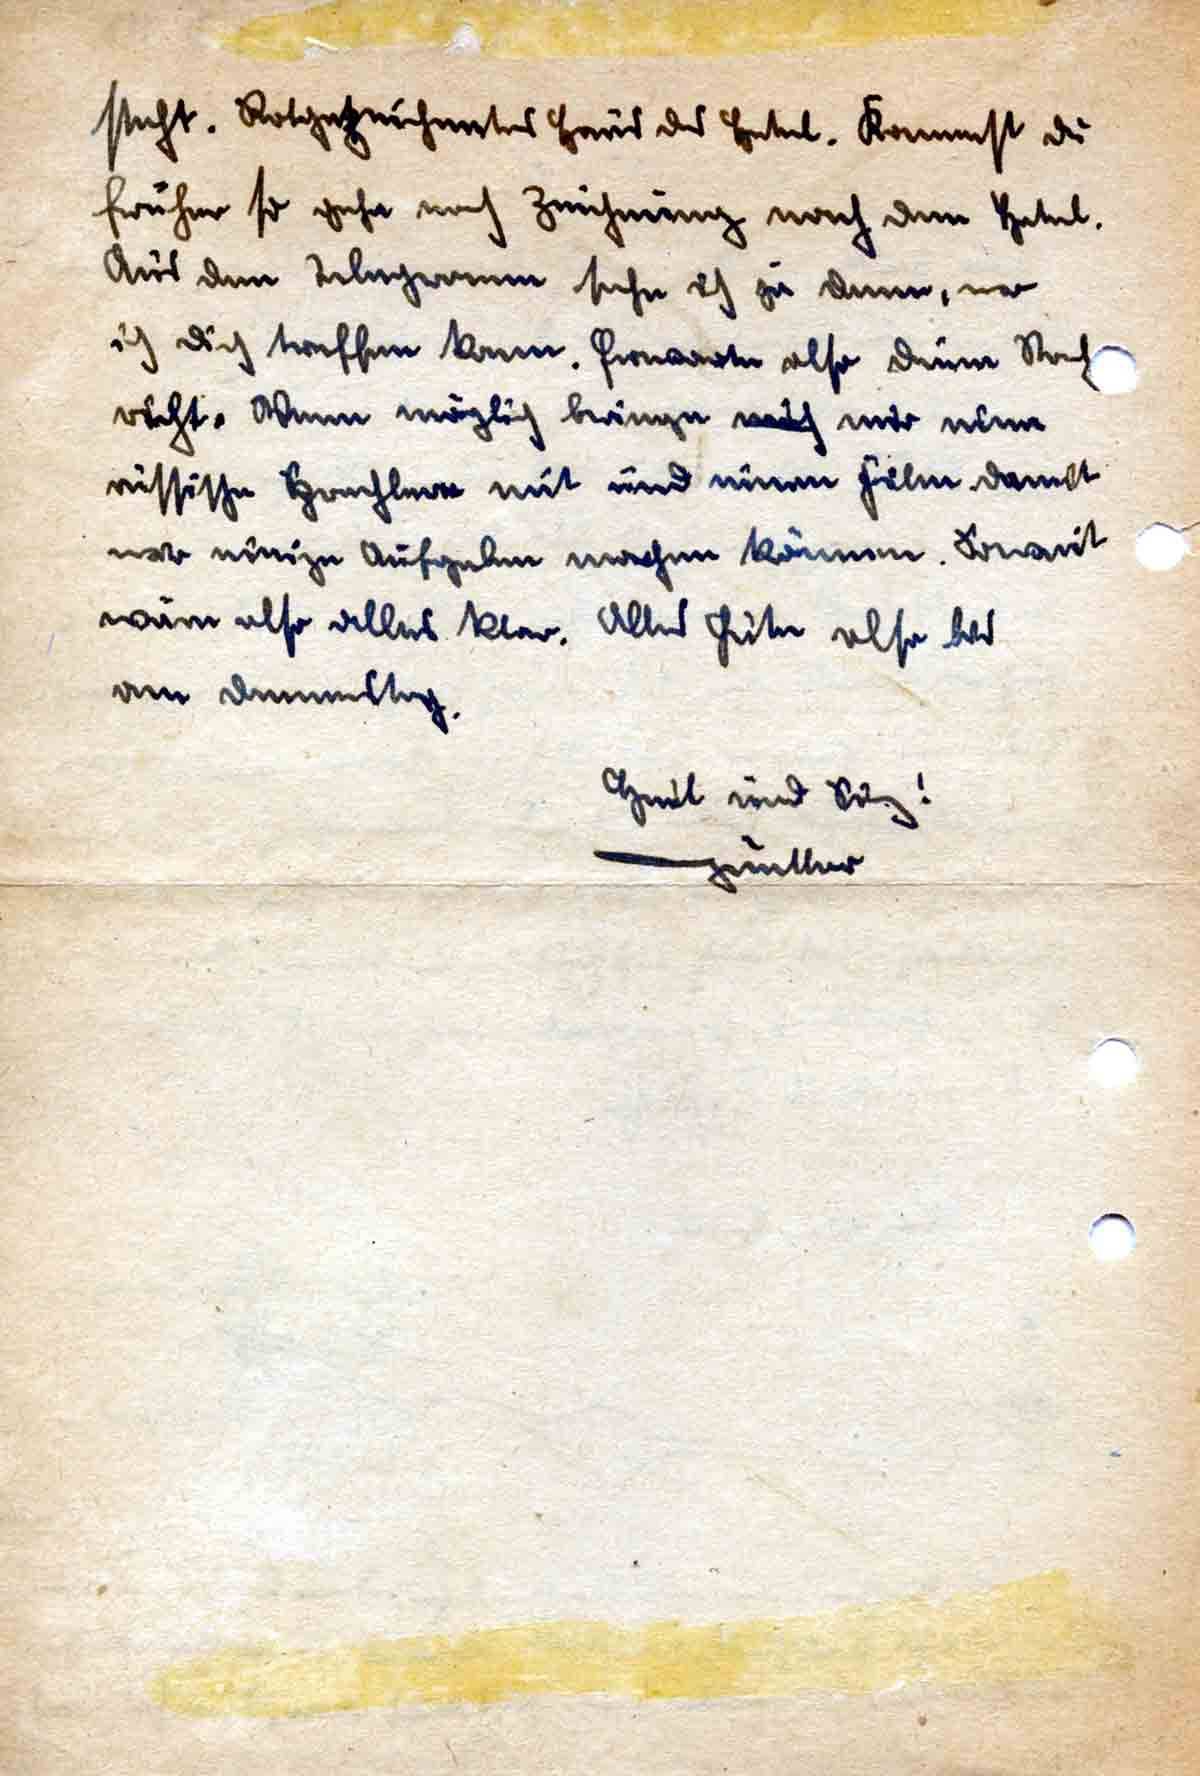 steht. Rotgezeichnetes Haus das Hotel. Kommst du
früher so gehe nach Zeichnung nach dem Hotel.
Aus dem Telegramm sehe ich ja dann, wo
ich dich treffen kann. Erwarte also deine Nach
richt. Wenn möglich bringe mich mir eine
russische Sprachlere mit und einen Film damit
wir einige Aufgaben machen können. Soweit
wäre also alles klar. Alles Gute also bis
am Dennestag.
Heil und Sieg!
Günther